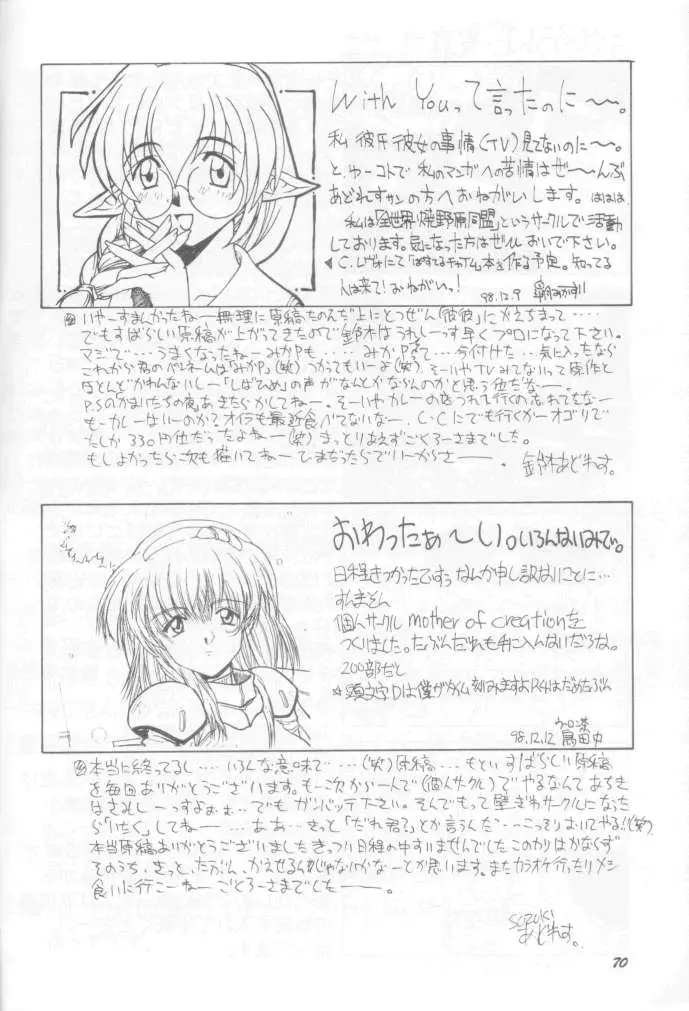 With Youって言ったのに〜。
私 彼氏彼女の事情(TV)見てないのに〜。
と、ゆーコトで私のマンガへの苦情はぜ〜んぶ
あどれすサンの方へおねがいします。ははは、
私は「全世界焼野原同盟」というサークルで活動
しております。気になった方はぜひおいで下さい。
作る予定。知ってる
人は来て!おねがい!
98.12.9
いやーすまんかったねー無理に原稿たのんだ上にとつぜん(彼彼)にかえちまって‥‥
でもすばらしい原稿が上がってきたので鈴木はうれしーっす早くプロになって下さい。
マジで‥‥うまくなったねーみかPも‥‥みかPって‥‥今付けた‥‥気に入ったなら
これから君のペンネームは「みかP」(笑)つかってもいーよ(笑)。そーいやTVみてないって原作と
ほとんどかわんないしー「しばひめ」の声がなんとか
P.Sのかまいたちの夜、あきたらかしてねー。そーいやカレーの店つれて行くの忘れてたなー
もーカレーはいーのか?オイラも最近食べてないなー、C・Cにでも行くかーオゴリで
たしか330円位だったよねー(笑)まっとりあえずごくろーさまでした。
もしよかったら次も描いてねーひまだったらでいーからさー。
鈴木あどれす。
おわったぁ〜い。いろんないみで。
日程きつかったですぅ なんか申し訳ないことに…
すんません
個人サークル mother of creationを
つくりました。たぶんだれも手に入んないだろな。
200部だし
98.12.12
本当に終ってるし‥‥いろんな意味で‥‥(笑)原稿‥‥もといすばらしい原稿
を毎回ありがとうございます。もー次からー人で(個人サークル)でやるなんてあちき
はさみしーっすよぉぉ…でもガンバッテ下さい。そんでもって壁ぎわサークルになった
ら「いたく」してねー‥‥ああ‥きっと「だれ君?」とか言うんだ‥
本当原稿ありがとうございましたきっつい日程の中すいませんでしたこのかりはかなくず
そのうち、きっと、たぶん、かえせるんじゃないかなーとか思います。またカラオケ行ったりメシ
食いに行こーねーごくろーさまでしたー。
SUZUKI
あどれす。
70